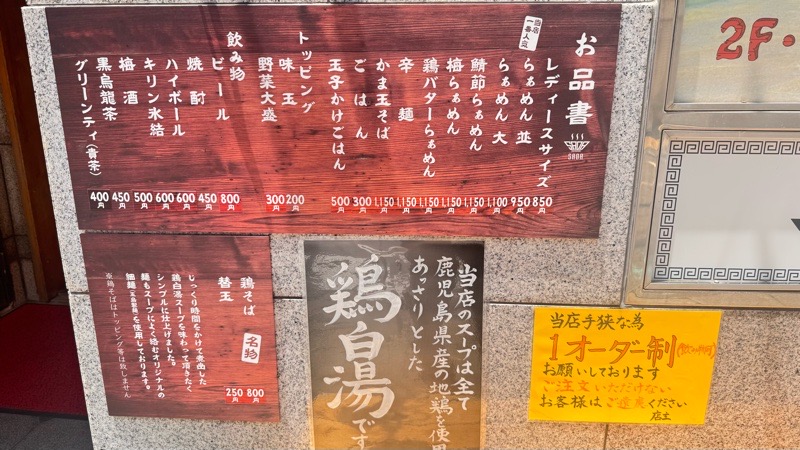 お品書
SOBA
当店
一番人気
レディースサイズ 850円
らぁめん 並 950円
らぁめん 大 1,100円
鯖節らぁめん 1,150円
梅らぁめん 1,150円
鶏バターらぁめん 1,150円
辛麺 1,150円
かま玉そば 1,150円
ごはん 300円
玉子かけごはん 500円
トッピング
味玉 200円
野菜大盛 300円
飲み物
ビール 800円
焼酎 450円
ハイボール 600円
キリン氷結 600円
梅酒 500円
黒烏龍茶 450円
グリーンティ(貴茶) 400円
鶏そば 名物 800円
替玉 250円
じっくり時間をかけて煮出した
鶏白湯スープを味わって頂きたく
シンプルに仕上げました。
麺もスープによく絡むオリジナルの
細麺を使用しております。
※鶏そばはトッピング等は致しません
当店のスープは全て
鹿児島県産の地鶏を使用
あっさりとした
鶏白湯です
当店手狭な為
1オーダー制
お願いしております
ご注文いただけない
お客様はご遠慮ください
店主
2F